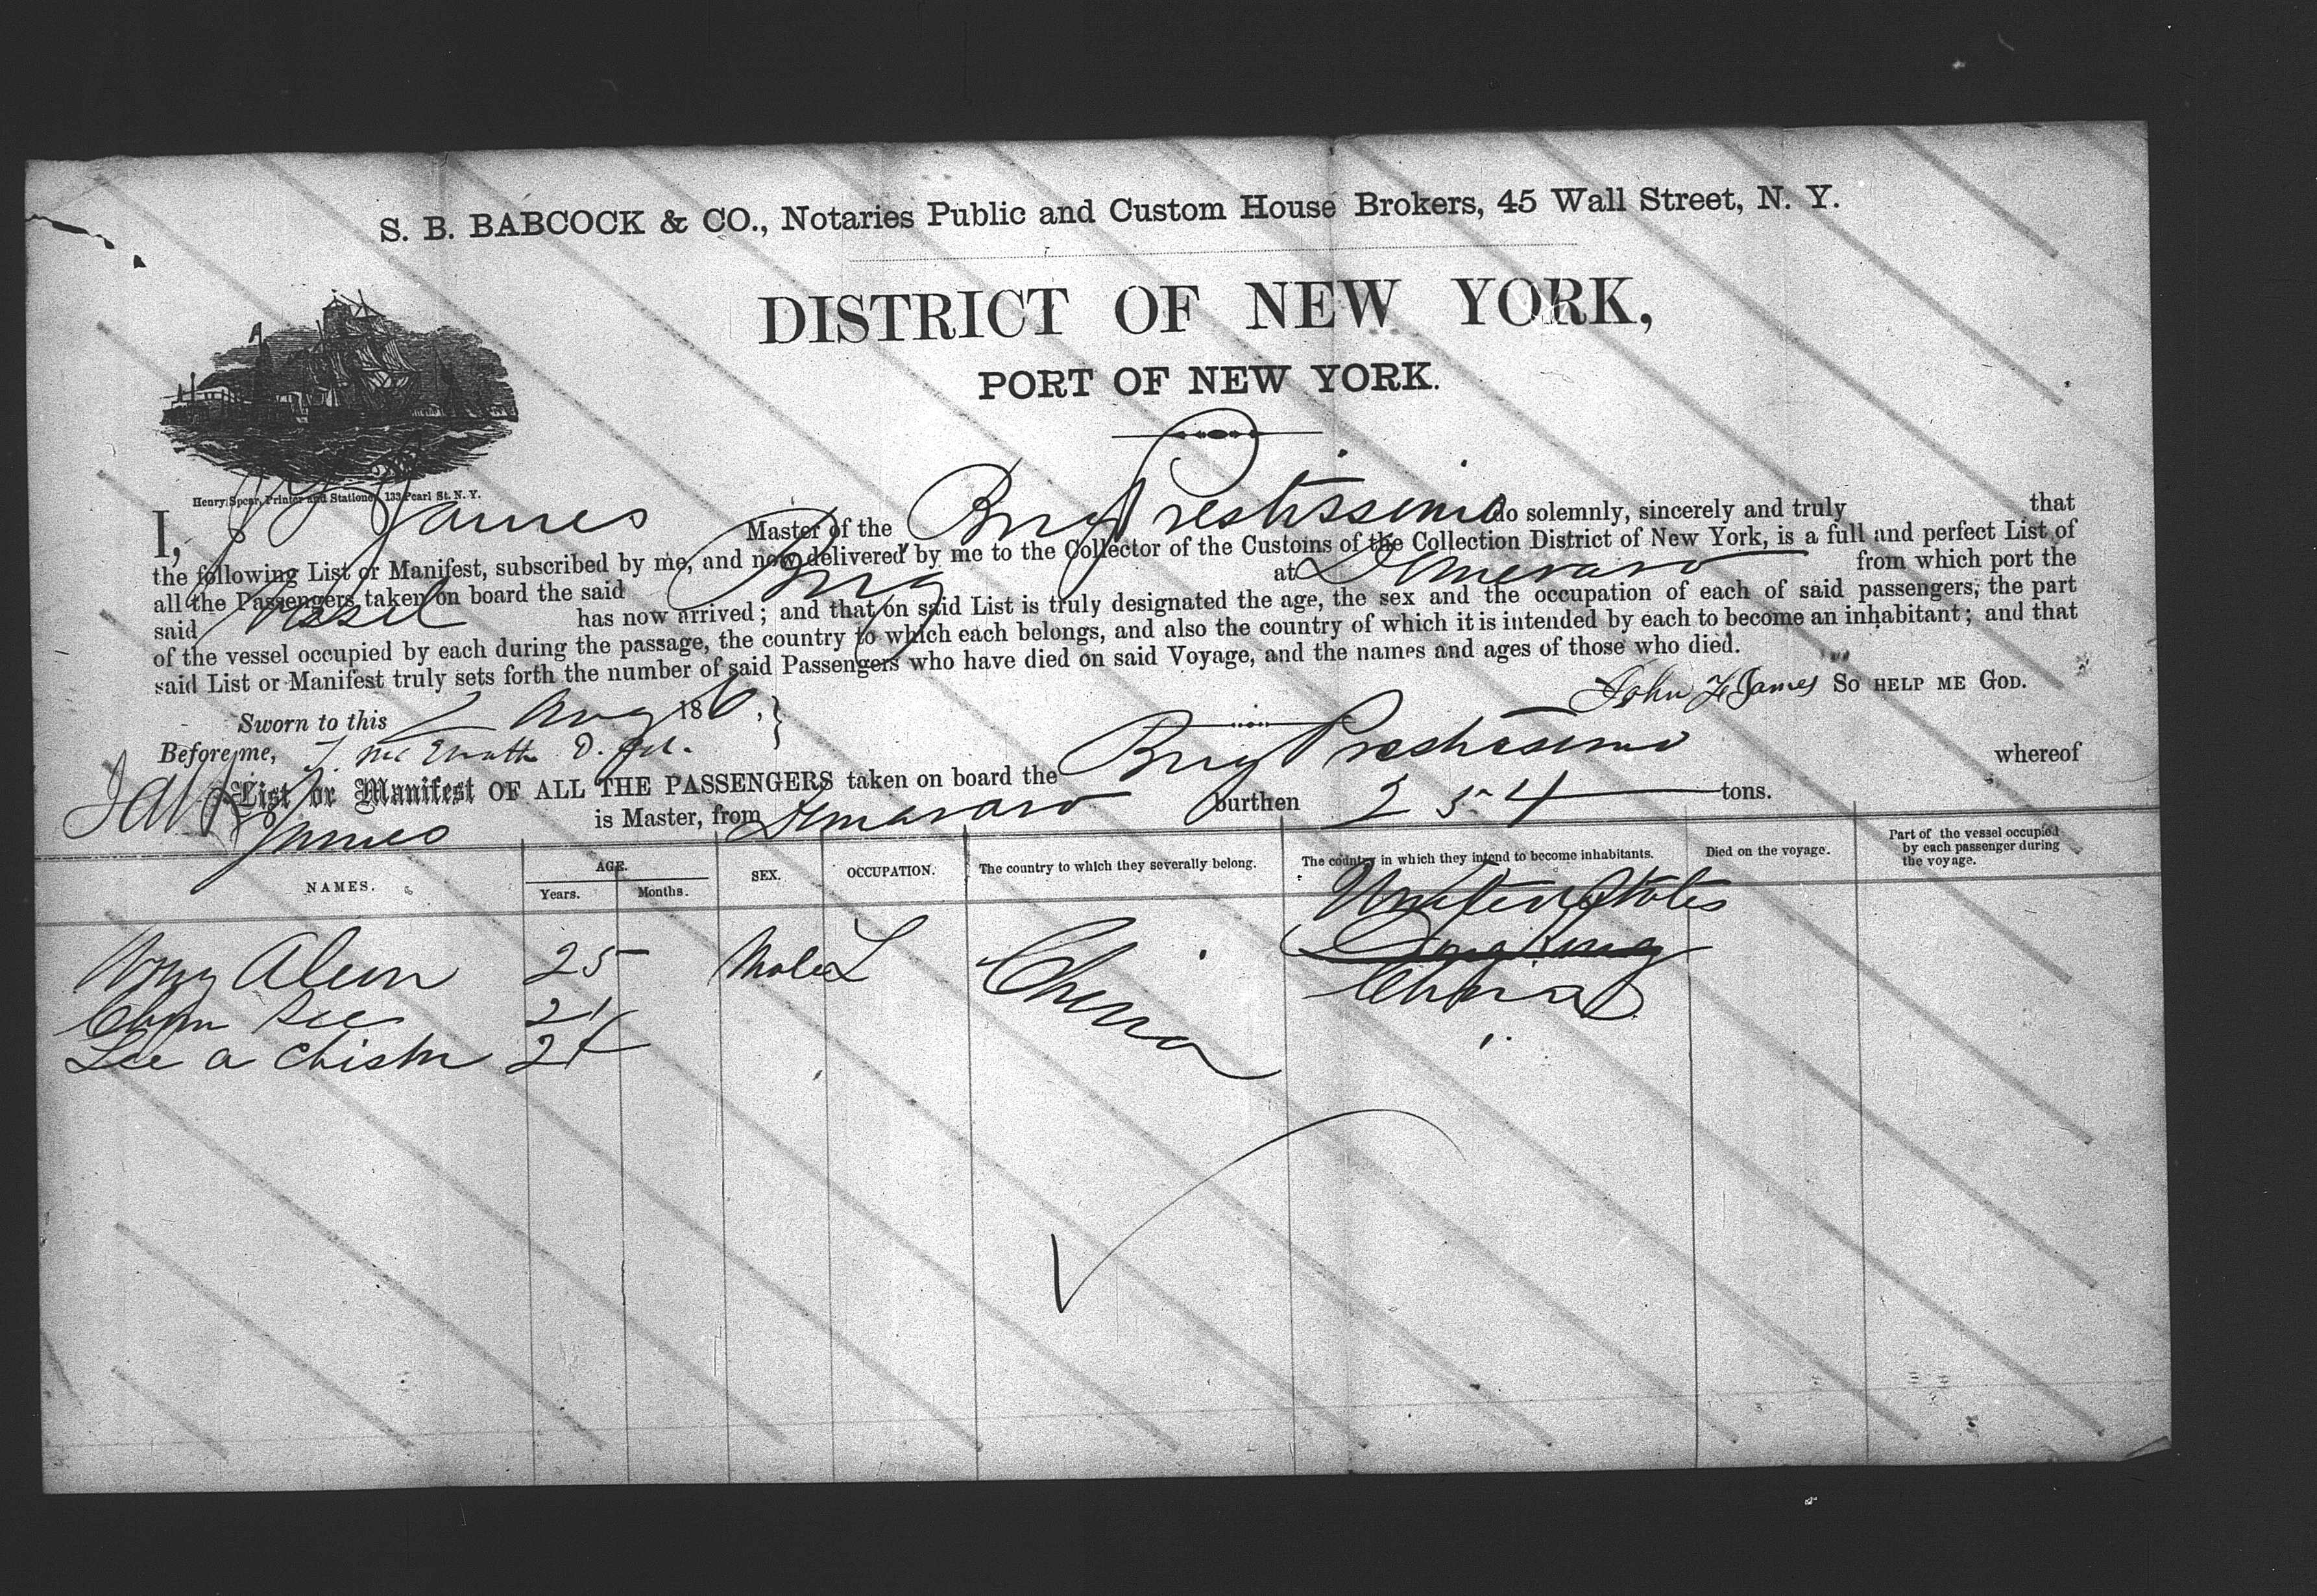 S. B. BABCOCK & CO., Notaries Public and Custom House Brokers, 45 Wall Street, N. Y.
DISTRICT OF NEW YORK,
PORT OF NEW YORK.
Henry Spear, Printer and Stationer, 133 Pearl St. N. Y.
I, James Master of the Brig Prestissimo do solemnly, sincerely and truly that
the following List or Manifest, subscribed by me, and now delivered by me to the Collector of the Customs of the Collection District of New York, is a full and perfect List of
all the Passengers taken on board the said Brig at Demeraro from which port the
said Vessel has now arrived; and that on said List is truly designated the age, the sex and the occupation of each of said passengers; the part
of the vessel occupied by each during the passage, the country to which each belongs, and also the country of which it is intended by each to become an inhabitant; and that
said List or Manifest truly sets forth the number of said Passengers who have died on said Voyage, and the names and ages of those who died.
John F James SO HELP ME GOD.
Sworn to this 2 Aug 186
Before me,
List or Manifest OF ALL THE PASSENGERS taken on board the Brig Prestissimo whereof
James is Master, from Demararo burthen 254 tons.
NAMES. AGE. Years. Months. SEX. OCCUPATION. The country to which they severally belong. The country in which they intend to become inhabitants. Died on the voyage. Part of the vessel occupied by each passenger during the voyage.
United States
25 Male L China
21 China
Lee a 24